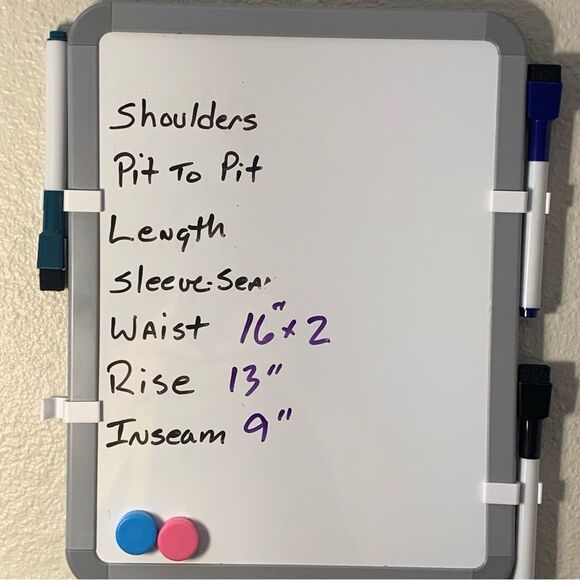 Shoulders
Pit To Pit
Length
Sleeve-
Waist 16" x 2
Rise 13"
Inseam 9"